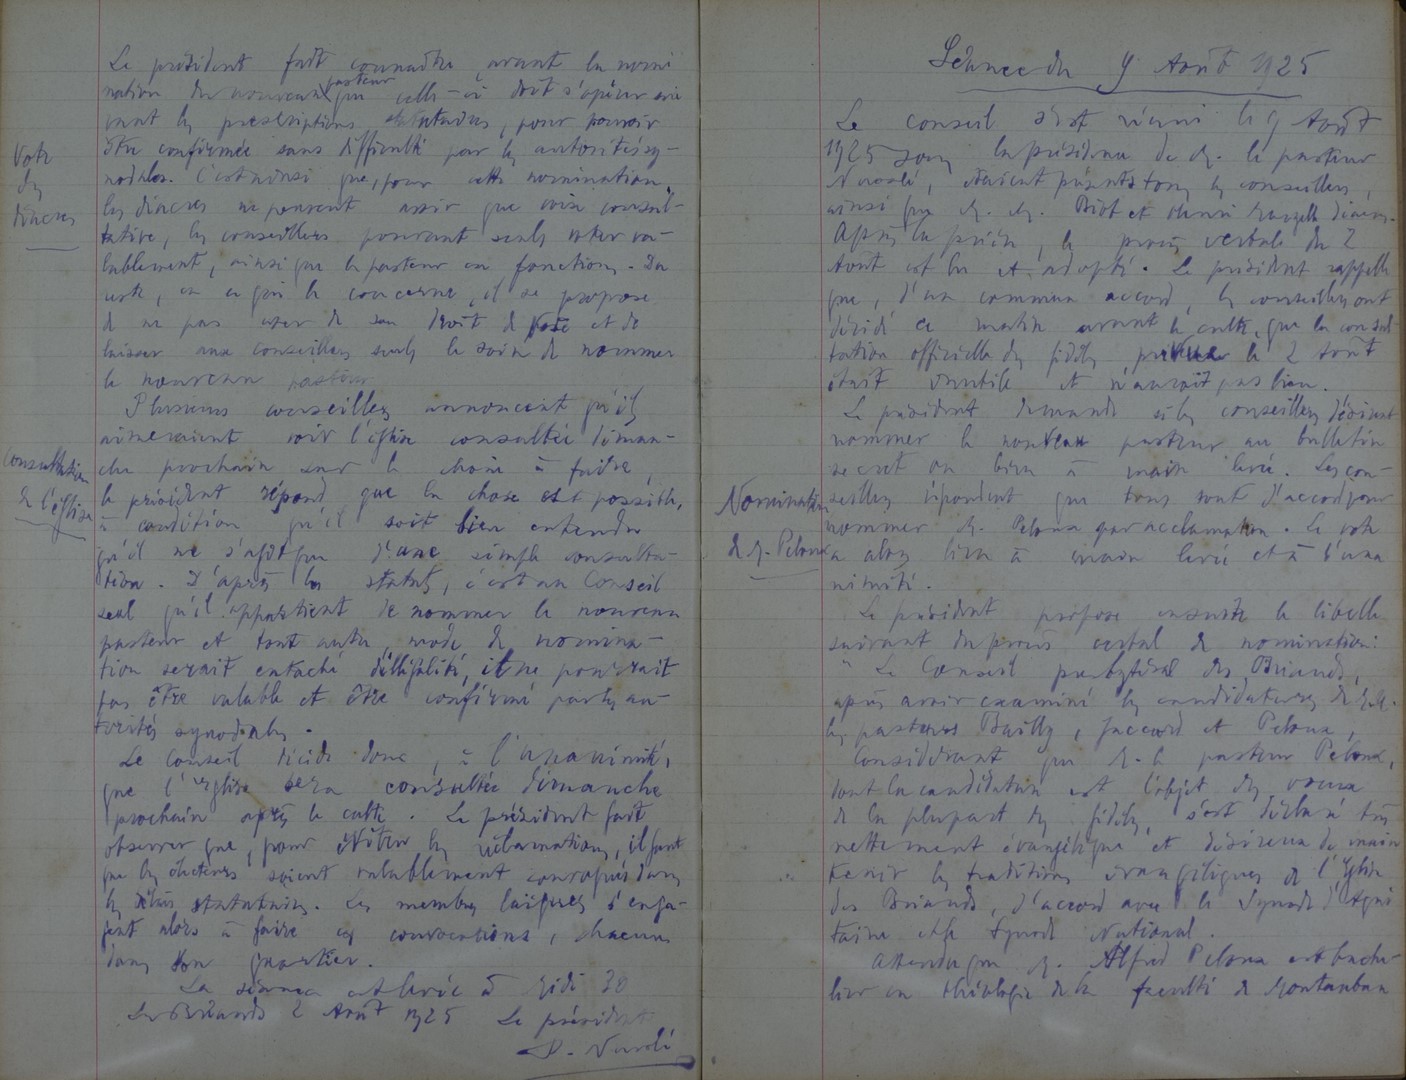 Le président fait connaître avant la nomi
nation du nouveau pasteur que celle-ci doit s'opérer sui
vant les prescriptions statutaires, pour pouvoir
être confirmée sans difficulté par les autorités sy-
nodales. C'est ainsi que, pour cette nomination,
les diacres ne peuvent avoir que voix consul-
tative, les conseillers pouvant seuls voter va-
lablement, ainsi que le pasteur en fonctions. Du
reste, en ce qui le concerne, il se propose
de ne pas user de son droit de vote et de
laisser aux conseillers seuls le soin de nommer
le nouveau pasteur
Vote
des
diacres
Plusieurs conseillers annoncent qu'ils
aimeraient voir l'église consultée diman-
che prochain sur le choix à faire,
le président répond que la chose est possible,
à condition qu'il soit bien entendu
qu'il ne s'agit que d'une simple consulta-
tion. D'après les statuts, c'est au Conseil
seul qu'il appartient de nommer le nouveau
pasteur et tout autre mode de nomina-
tion serait entaché d'illégalité, il ne pourrait
pas être valable et être confirmé par les au-
torités synodales.
Consultation
de l'église
Le Conseil décide donc, à l'unanimité,
que l'église sera consultée dimanche
prochain après le culte. Le président fait
observer que, pour éviter les réclamations, il faut
que les électeurs soient valablement convoqués dans
les délais statutaires. Les membres laïques s'enga-
gent alors à faire ces convocations, chacun
dans son quartier.
La séance est levée à Midi 30
Les Briands 2 Août 1925 Le président
Séance du 9 Août 1925
Le conseil s'est réuni le 9 Août
1925 sous la présidence de M. le pasteur
étaient présents tous les conseillers,
ainsi que M. M. Biot et Henri diacres.
Après la prière, le procès verbal du 2
Août est lu et adopté. Le président rappelle
que, d'un commun accord, les conseillers ont
décidé ce matin avant le culte, que la consul
tation officielle des fidèles prévue le 2 Août
était inutile et n'aurait pas lieu.
Le président demande si les conseillers désirent
nommer le nouveau pasteur au bulletin
secret ou bien à main levée. Les con-
seillers répondent que tous sont d'accord pour
nommer M. Peloux par acclamation. Le vote
a alors lieu à main levée et à l'una
nimité.
Nomination
de M. Peloux
Le président propose ensuite le libellé
suivant du procès verbal de nomination:
" Le Conseil presbytéral des Briands,
après avoir examiné les candidatures de M.M.
les pasteurs Bailly, Jaccard et Peloux,
Considérant que M. le pasteur Peloux,
dont la candidature est l'objet des voeux
de la plupart des fidèles, s'est déclaré très
nettement évangélique et désireux de main
tenir les traditions évangéliques de l'Eglise
des Briands, d'accord avec le Synode d'Aqui
taine et le Synode National.
Attendu que M. Alfred Peloux est bache-
lier en théologie de la faculté de Montauban